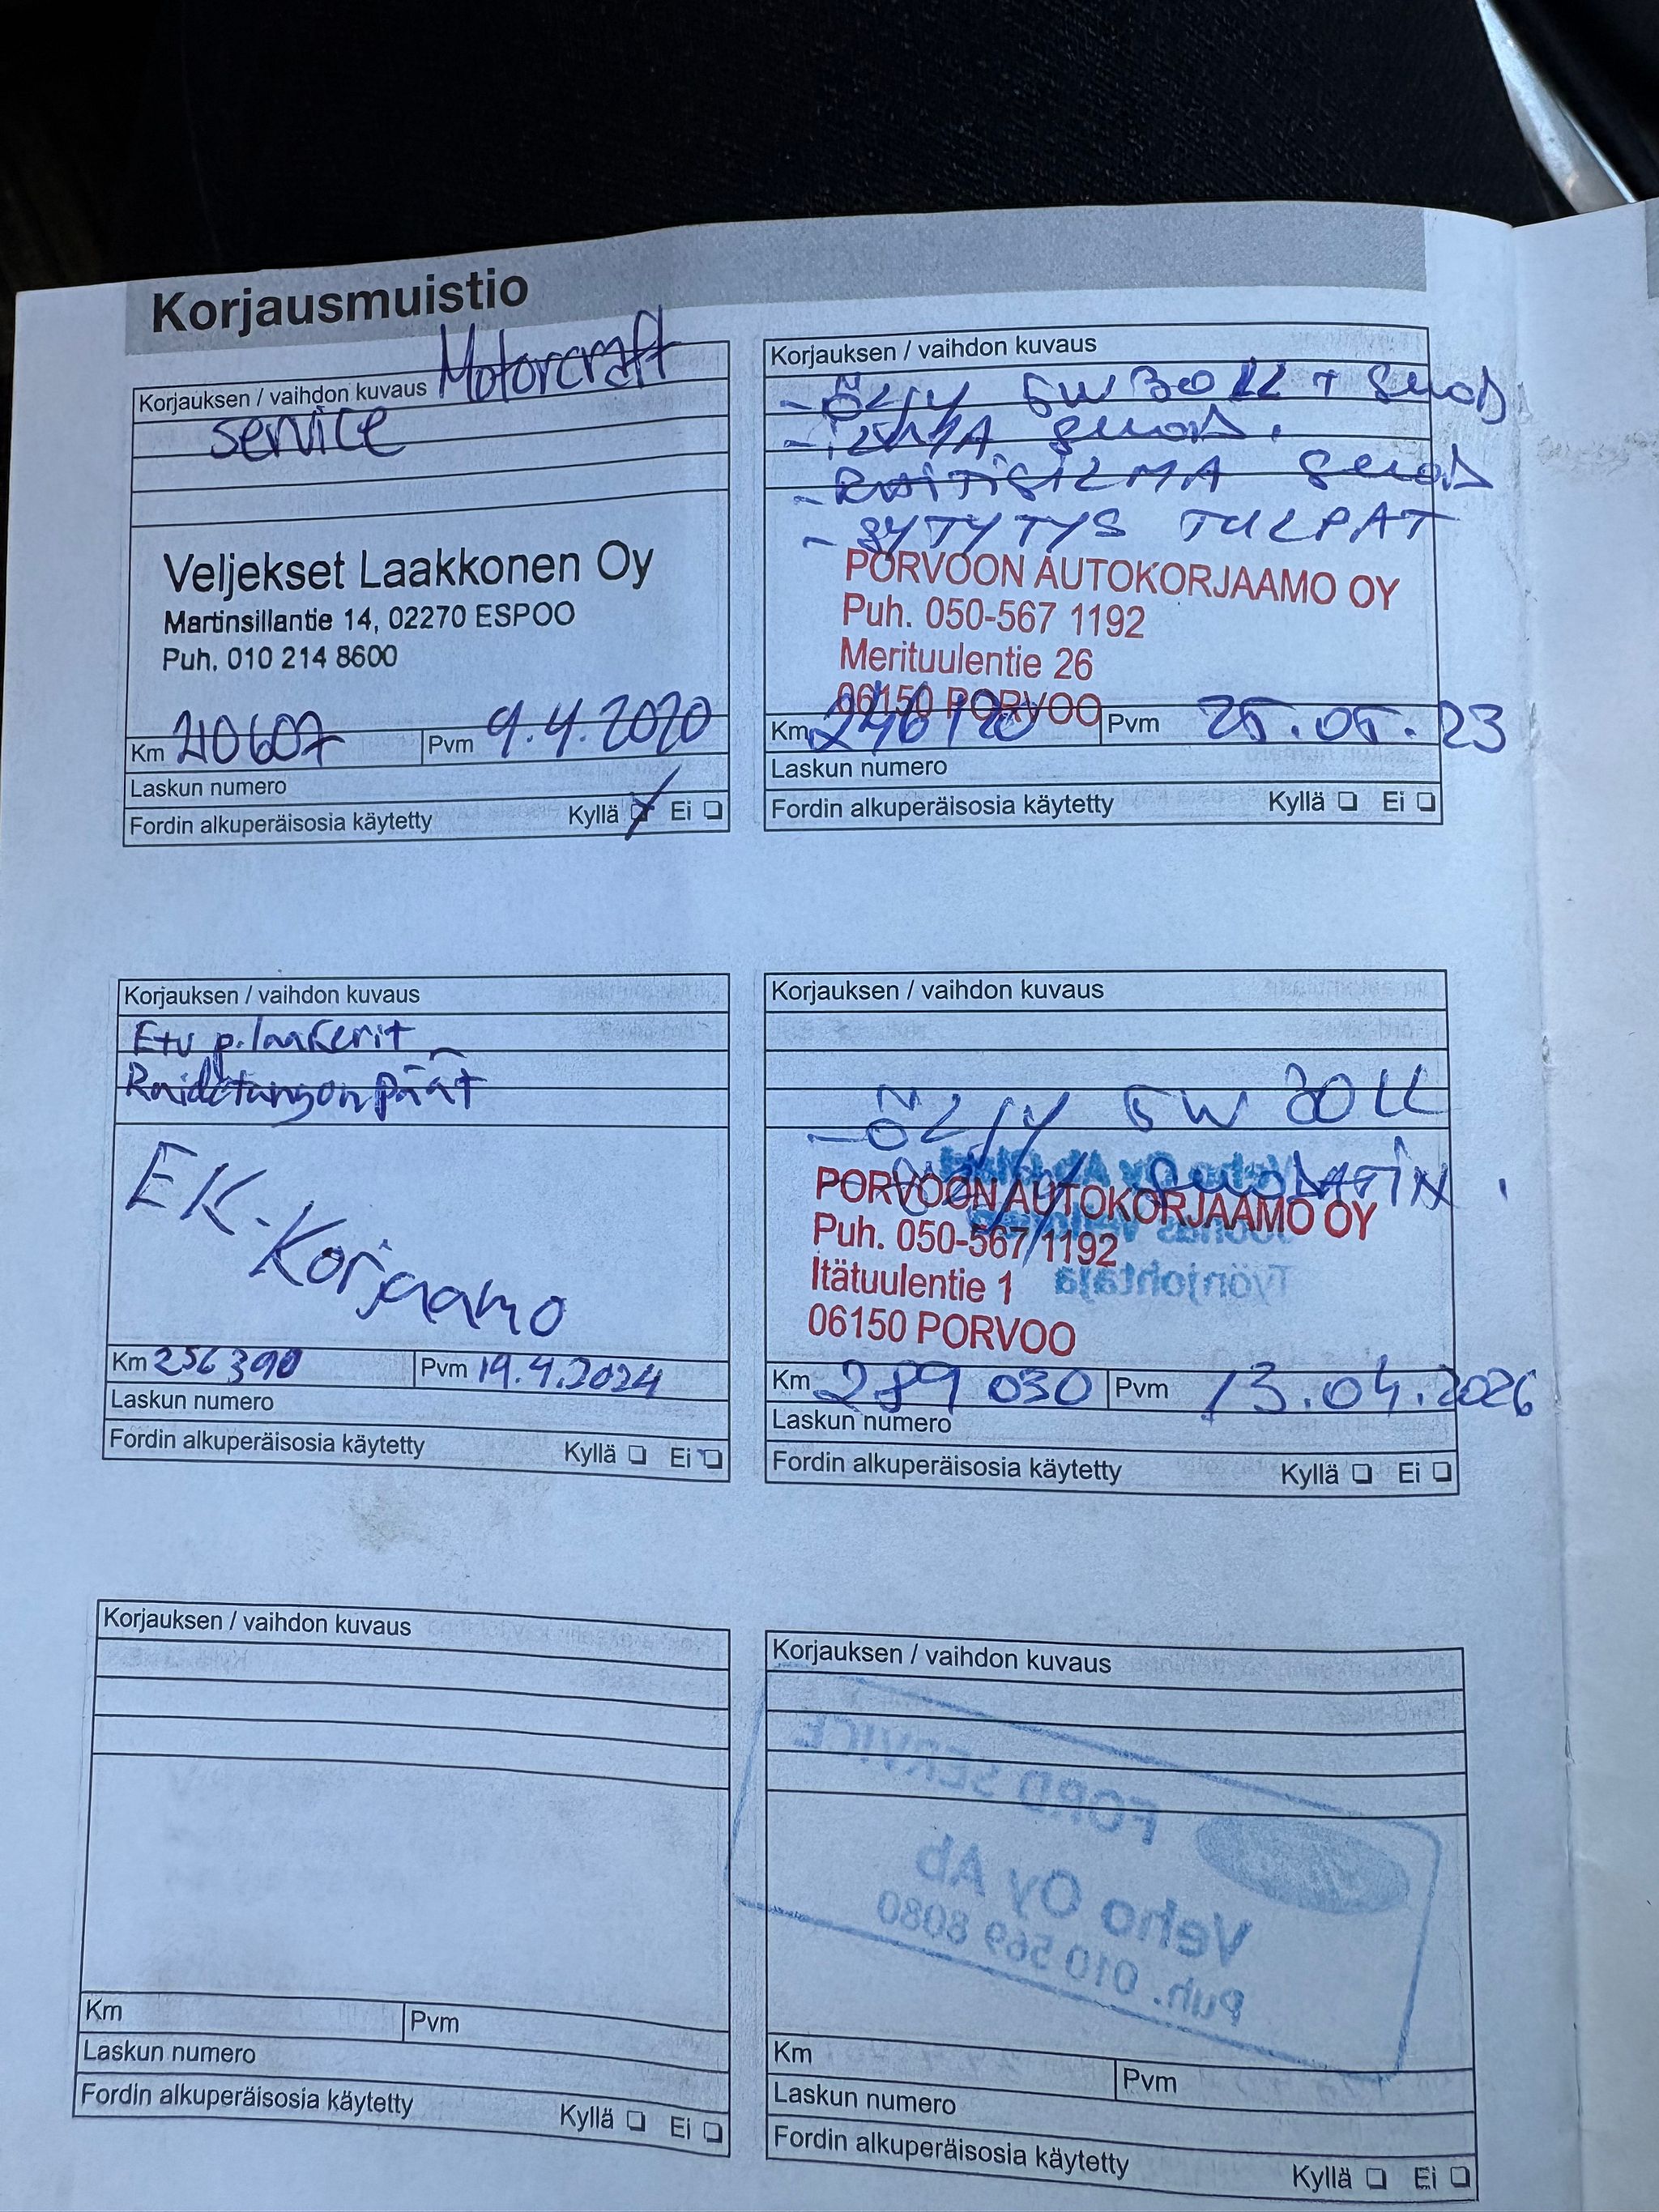 Korjausmuistio
Korjauksen / vaihdon kuvaus Motorcraft
service
Veljekset Laakkonen Oy
Martinsillantie 14, 02270 ESPOO
Puh. 010 214 8600
Km 210607 Pvm 9.4.2020
Laskun numero
Fordin alkuperäisosia käytetty Kyllä Ei
Korjauksen / vaihdon kuvaus
- ÖLJY 5W30 LL + SUOD
- ILMA SUOD.
- RAITISILMA SUOD
- SYTYTYS TULPAT
PORVOON AUTOKORJAAMO OY
Puh. 050-567 1192
Merituulentie 26
06150 PORVOO
Km Pvm 25.05.23
Laskun numero
Fordin alkuperäisosia käytetty Kyllä Ei
Korjauksen / vaihdon kuvaus
Etu p.laakerit
Raidetangonpäät
EK-Korjaamo
Km 256390 Pvm 19.4.2024
Laskun numero
Fordin alkuperäisosia käytetty Kyllä Ei
Korjauksen / vaihdon kuvaus
- ÖLJY 5W 30 LL
PORVOON AUTOKORJAAMO OY
Puh. 050-567 1192
Itätuulentie 1
06150 PORVOO
Km 289 030 Pvm 13.04.2026
Laskun numero
Fordin alkuperäisosia käytetty Kyllä Ei
Korjauksen / vaihdon kuvaus
Km Pvm
Laskun numero
Fordin alkuperäisosia käytetty Kyllä Ei
Korjauksen / vaihdon kuvaus
FORD SERVICE
Veho Oy Ab
Puh. 010 569 8080
Km Pvm
Laskun numero
Fordin alkuperäisosia käytetty Kyllä Ei